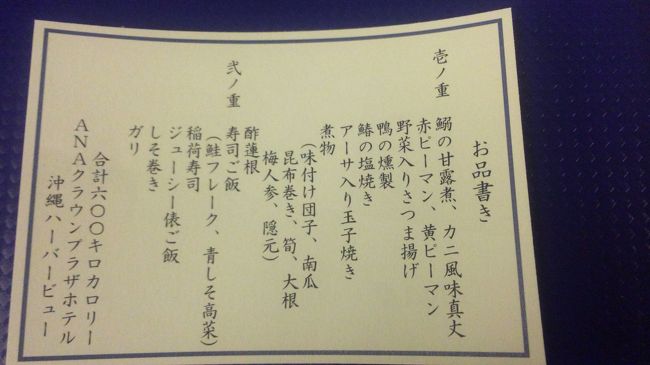 お品書き
壱ノ重
鰯の甘露煮、カニ風味真丈
赤ピーマン、黄ピーマン
野菜入りさつま揚げ
鴨の燻製
鰆の塩焼き
アーサ入り玉子焼き
煮物
（味付け団子、南瓜
昆布巻き、筍、大根
梅人参、隠元）
弐ノ重
酢蓮根
寿司ご飯
（鮭フレーク、青しそ高菜）
稲荷寿司
ジューシー俵ご飯
しそ巻き
ガリ
合計六〇〇キロカロリー
ANAクラウンプラザホテル
沖縄ハーバービュー